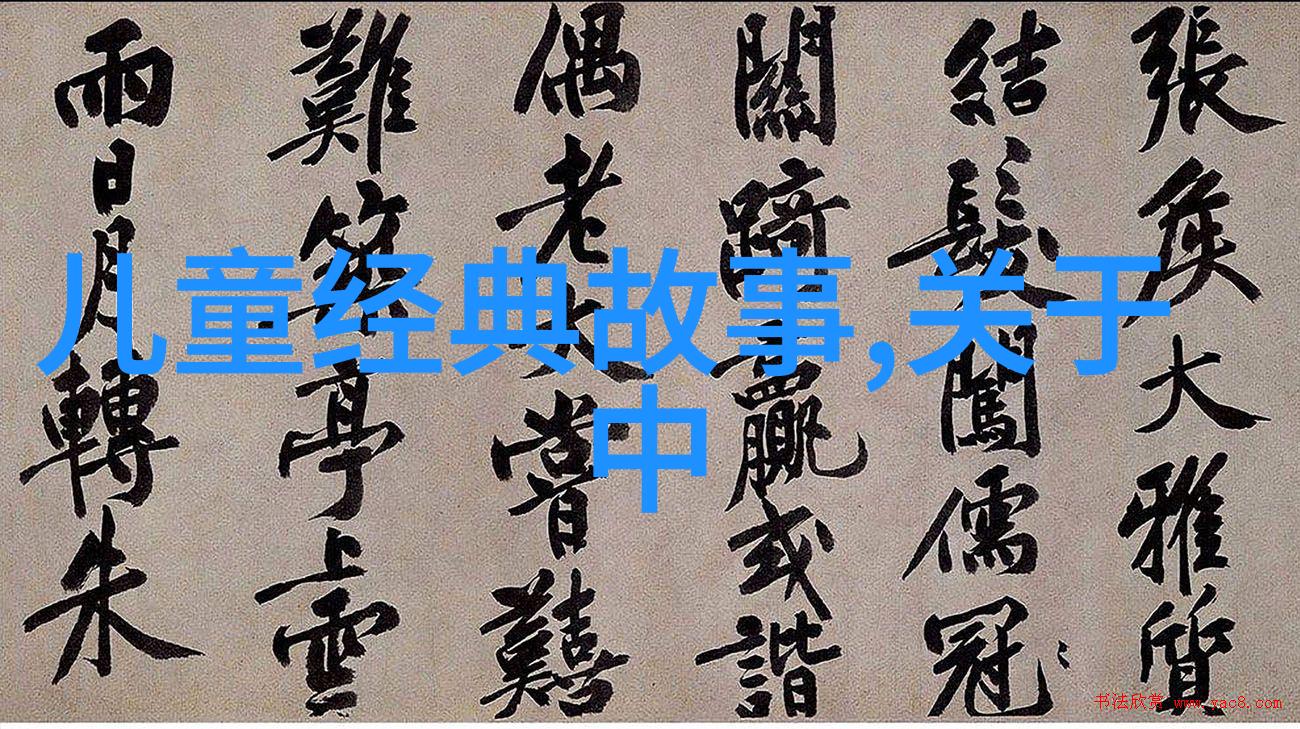 張矦大雅質
結髮闖儒冠
關踦羸或諧
偶老大嘗囏
難築亭上雲
雨日月轉朱
儿童经典故事,关于
中
书法欣赏 www.yac8.com